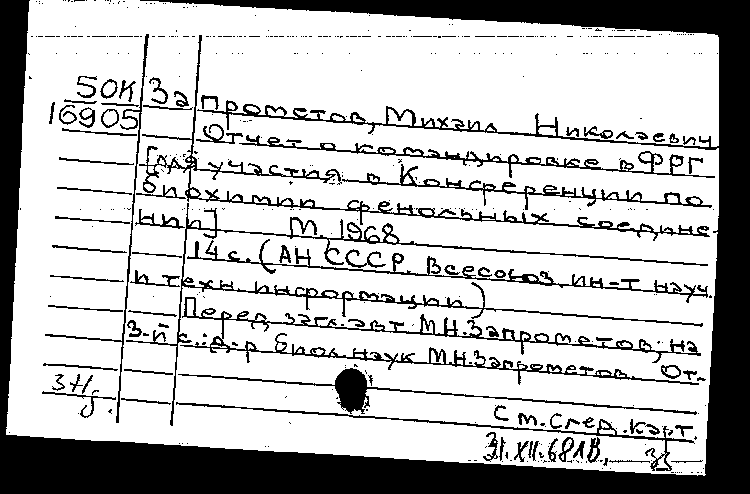 50К За
16905 прометов, Михаил Николаевич
Отчет о командировке в ФРГ
[для участия в Конференции по
биохимии фенольных соедине-
нии]. М. 1968.
14 с. (АН СССР. Всесоюз. ин-т науч.
и техн. информации)
Перед загл. авт М.Н.Запрометов; на
3-й с.: д-р биол. наук М.Н.Запрометов. От-
См. след. карт.
31.XII.68